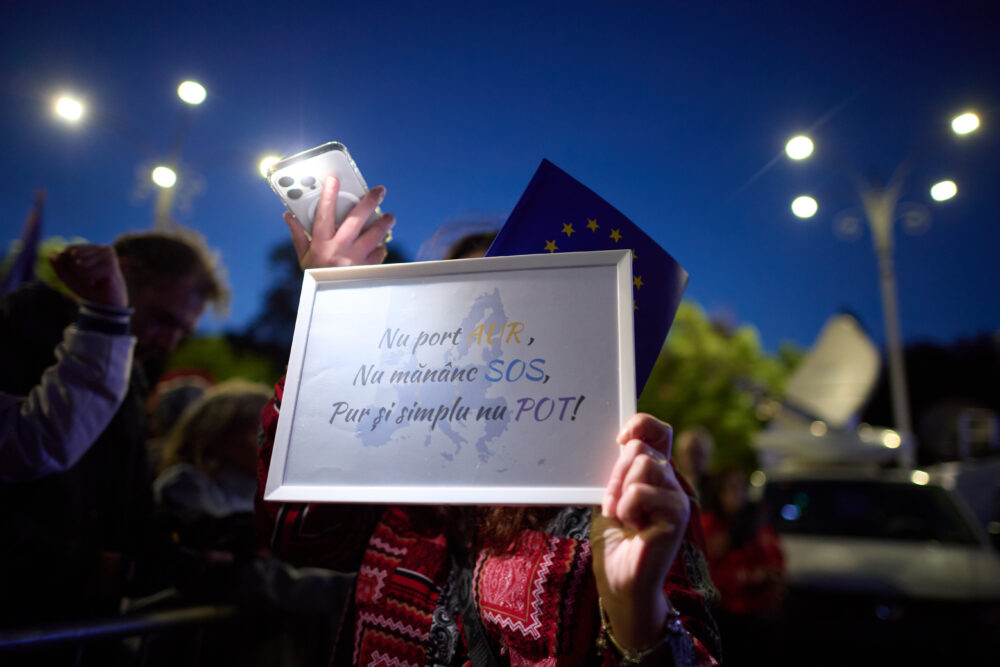 Nu port AUR,
Nu mănânc SOS,
Pur și simplu nu POT!